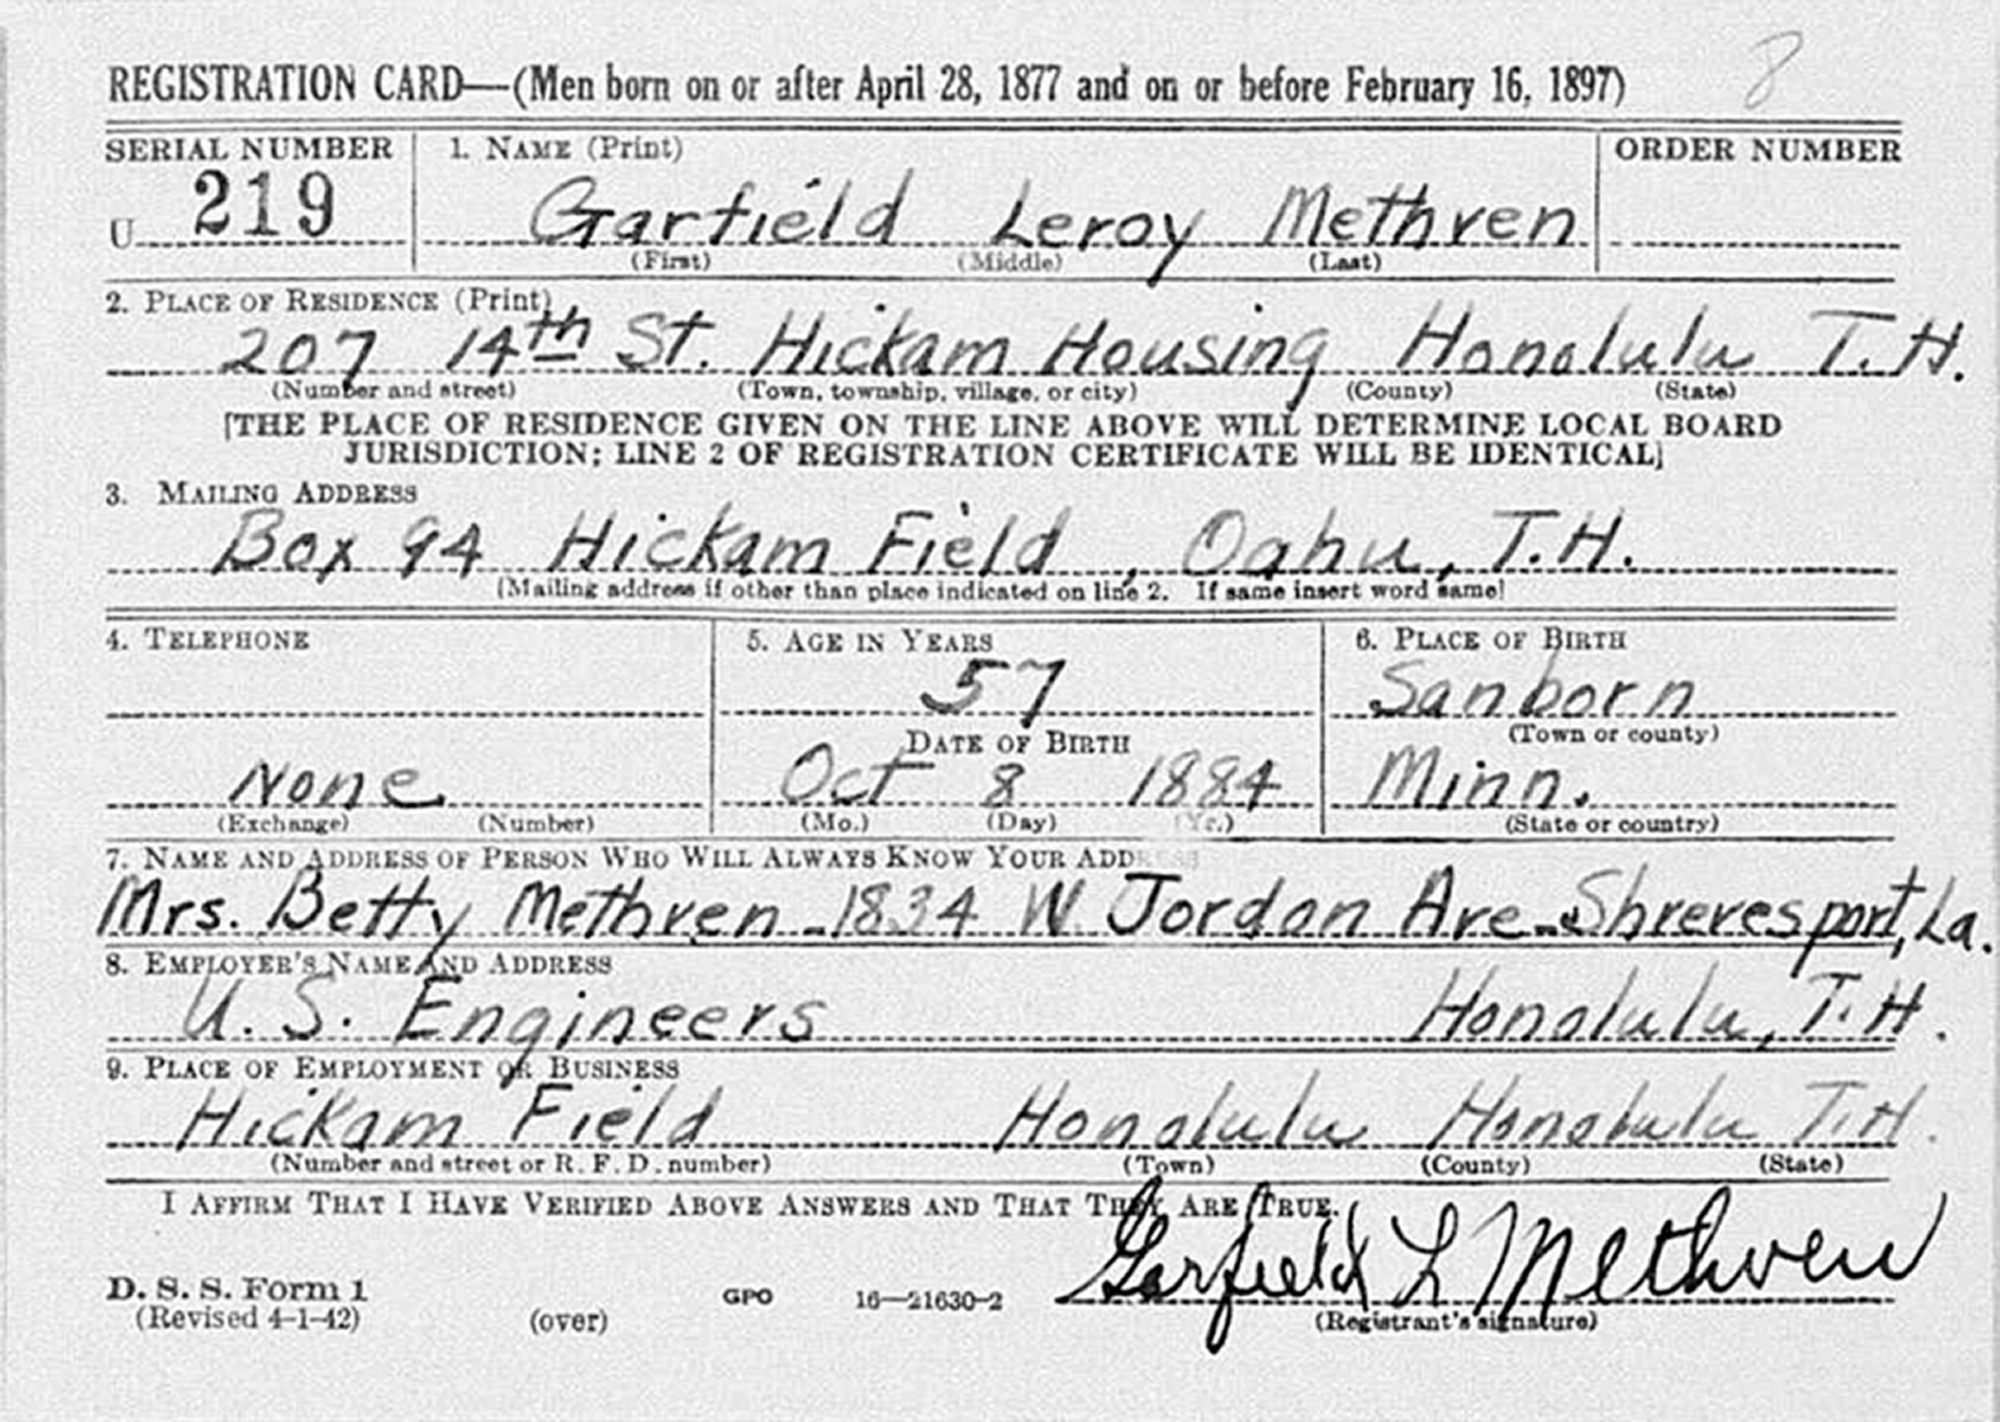 8
REGISTRATION CARD—(Men born on or after April 28, 1877 and on or before February 16, 1897)
SERIAL NUMBER 1. NAME (Print) ORDER NUMBER
U 219 Garfield Leroy Methven
(First) (Middle) (Last)
2. PLACE OF RESIDENCE (Print)
207 14th St. Hickam Housing Honolulu T.H.
(Number and street) (Town, township, village, or city) (County) (State)
[THE PLACE OF RESIDENCE GIVEN ON THE LINE ABOVE WILL DETERMINE LOCAL BOARD
JURISDICTION; LINE 2 OF REGISTRATION CERTIFICATE WILL BE IDENTICAL]
3. MAILING ADDRESS
Box 94 Hickam Field, Oahu, T.H.
[Mailing address if other than place indicated on line 2. If same insert word same]
4. TELEPHONE 5. AGE IN YEARS 6. PLACE OF BIRTH
57 Sanborn
DATE OF BIRTH (Town or county)
None Oct 8 1884 Minn.
(Exchange) (Number) (Mo.) (Day) (Yr.) (State or country)
7. NAME AND ADDRESS OF PERSON WHO WILL ALWAYS KNOW YOUR ADDRESS
Mrs. Betty Methven - 1834 W Jordan Ave - Shrevesport, La.
8. EMPLOYER'S NAME AND ADDRESS
U.S. Engineers Honolulu, T.H.
9. PLACE OF EMPLOYMENT OR BUSINESS
Hickam Field Honolulu Honolulu T.H.
(Number and street or R. F. D. number) (Town) (County) (State)
I AFFIRM THAT I HAVE VERIFIED ABOVE ANSWERS AND THAT THEY ARE TRUE.
Garfield L Methven
D. S. S. Form 1 GPO 16—21630-2
(Revised 4-1-42) (over) (Registrant's signature)